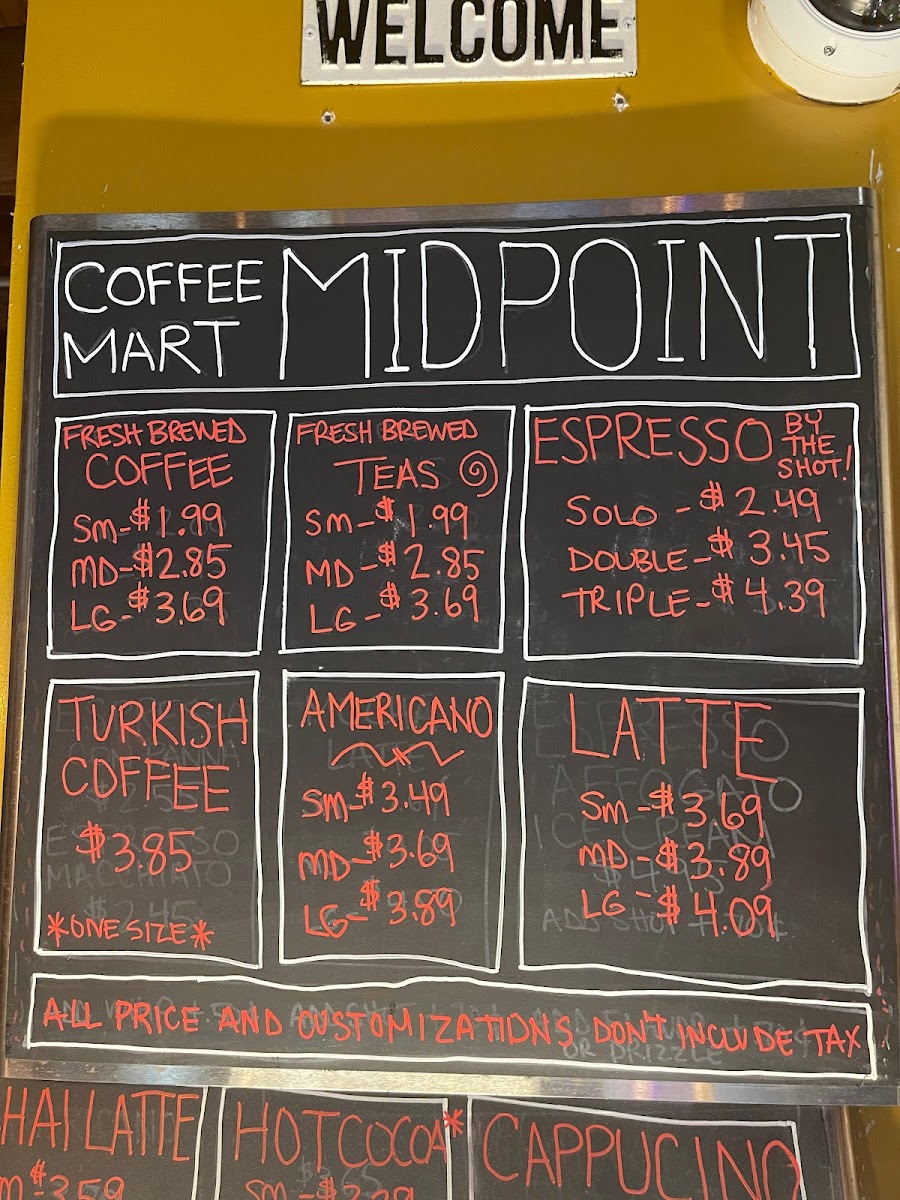 WELCOME
COFFEE MART
MIDPOINT
FRESH BREWED
COFFEE
SM-$1.99
MD-$2.85
LG-$3.69
FRESH BREWED
TEAS
SM-$1.99
MD-$2.85
LG-$3.69
ESPRESSO BY THE SHOT!
SOLO - $2.49
DOUBLE-$3.45
TRIPLE-$4.39
TURKISH
COFFEE
$3.85
*ONE SIZE*
AMERICANO
SM-$3.49
MD-$3.69
LG-$3.89
LATTE
SM-$3.69
MD-$3.89
LG-$4.09
ALL PRICE AND CUSTOMIZATIONS DON'T INCLUDE TAX
HAI LATTE
M-$3.59
HOT COCOA*
SM-$3.29
CAPPUCINO